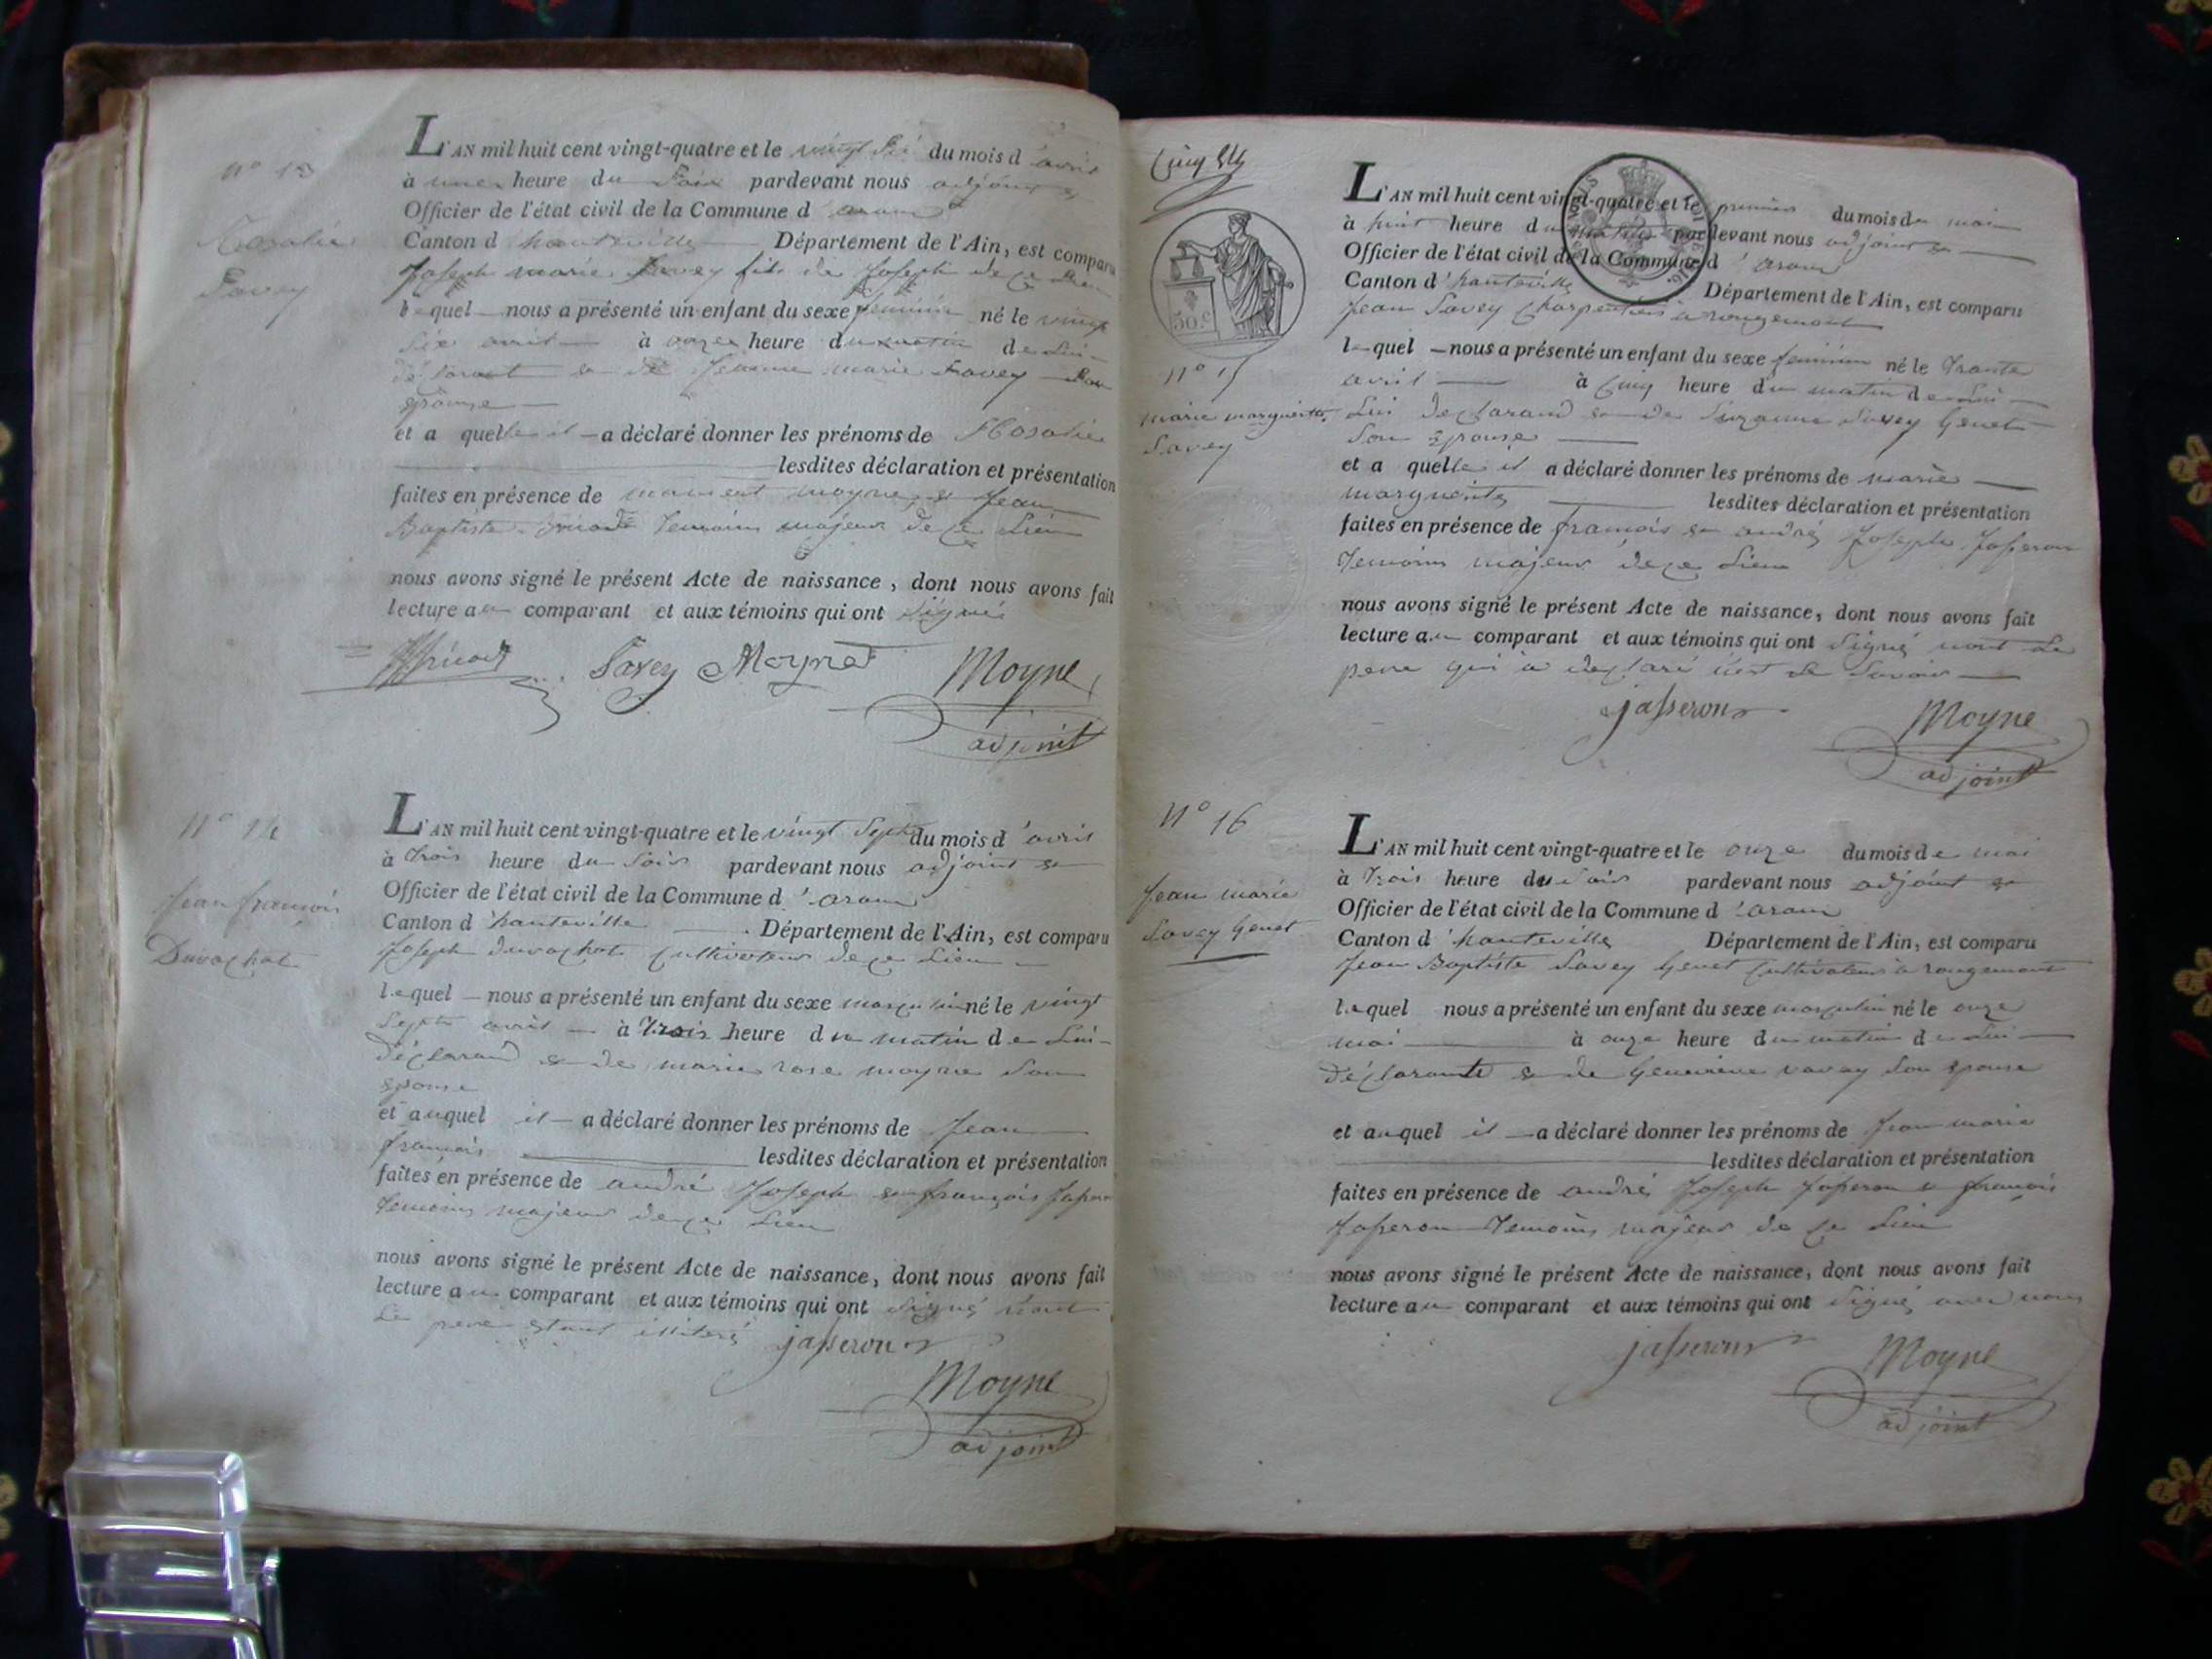 n° 13
Rosalie
Savey
L'AN mil huit cent vingt-quatre et le vingt six du mois d'avril
à une heure du soir pardevant nous adjoint &
Officier de l'état civil de la Commune d'aranc
Canton d'hauteville Département de l'Ain, est comparu
Joseph marie Savey fils de Joseph de ce lieu
lequel nous a présenté un enfant du sexe feminin né le vingt
six avril à onze heure du matin de lui
déclarant & de Jeanne marie Savey son
épouse
et a quelle il a déclaré donner les prénoms de Rosalie
lesdites déclaration et présentation
faites en présence de moynet & Jean
Baptiste temoins majeur de ce lieu
nous avons signé le présent Acte de naissance, dont nous avons fait
lecture au comparant et aux témoins qui ont signés
Savey Moynet Moyne
adjoint
n° 14
Jean françois
Duvachat
L'AN mil huit cent vingt-quatre et le vingt sept du mois d'avril
à trois heure du soir pardevant nous adjoint &
Officier de l'état civil de la Commune d'aranc
Canton d'hauteville Département de l'Ain, est comparu
Joseph duvachat cultivateur de ce lieu
lequel nous a présenté un enfant du sexe masculin né le vingt
sept avril à trois heure du matin de lui
déclarand & de marie rose moyne son
épouse
et auquel il a déclaré donner les prénoms de Jean
françois lesdites déclaration et présentation
faites en présence de andré Joseph & françois Jasseron
temoins majeur de ce lieu
nous avons signé le présent Acte de naissance, dont nous avons fait
lecture au comparant et aux témoins qui ont signé
le pere estant illiteré
jasseron
Moyne
adjoint
Cinq
50.c
n° 15
marie marguerite
Savey
L'AN mil huit cent vingt-quatre et le premier du mois de mai
à huit heure du matin pardevant nous adjoint &
Officier de l'état civil de la Commune d'aranc
Canton d'hauteville Département de l'Ain, est comparu
Jean Savey Charpentier à rougemont
lequel nous a présenté un enfant du sexe feminin né le trante
avril à cinq heure du matin de lui
lui declarand & de Suzanne Savey Genet
son épouse
et a quelle il a déclaré donner les prénoms de marie
marguerite lesdites déclaration et présentation
faites en présence de françois & andré Joseph Jasseron
temoins majeur de ce lieu
nous avons signé le présent Acte de naissance, dont nous avons fait
lecture au comparant et aux témoins qui ont signé nont le
pere qui a declaré
jasseron
Moyne
adjoint
n° 16
Jean marie
Savey Genet
L'AN mil huit cent vingt-quatre et le onze du mois de mai
à trois heure du soir pardevant nous adjoint &
Officier de l'état civil de la Commune d'aranc
Canton d'hauteville Département de l'Ain, est comparu
Jean Baptiste Savey Genet cultivateur à rougemont
lequel nous a présenté un enfant du sexe masculin né le onze
mai à onze heure du matin de lui
déclarante & de Genevieve vavay son épouse
et auquel il a déclaré donner les prénoms de Jean marie
lesdites déclaration et présentation
faites en présence de andré Joseph Jasseron & françois
Jasseron temoins majeur de ce lieu
nous avons signé le présent Acte de naissance, dont nous avons fait
lecture au comparant et aux témoins qui ont signé avec nous
jasseron
Moyne
adjoint